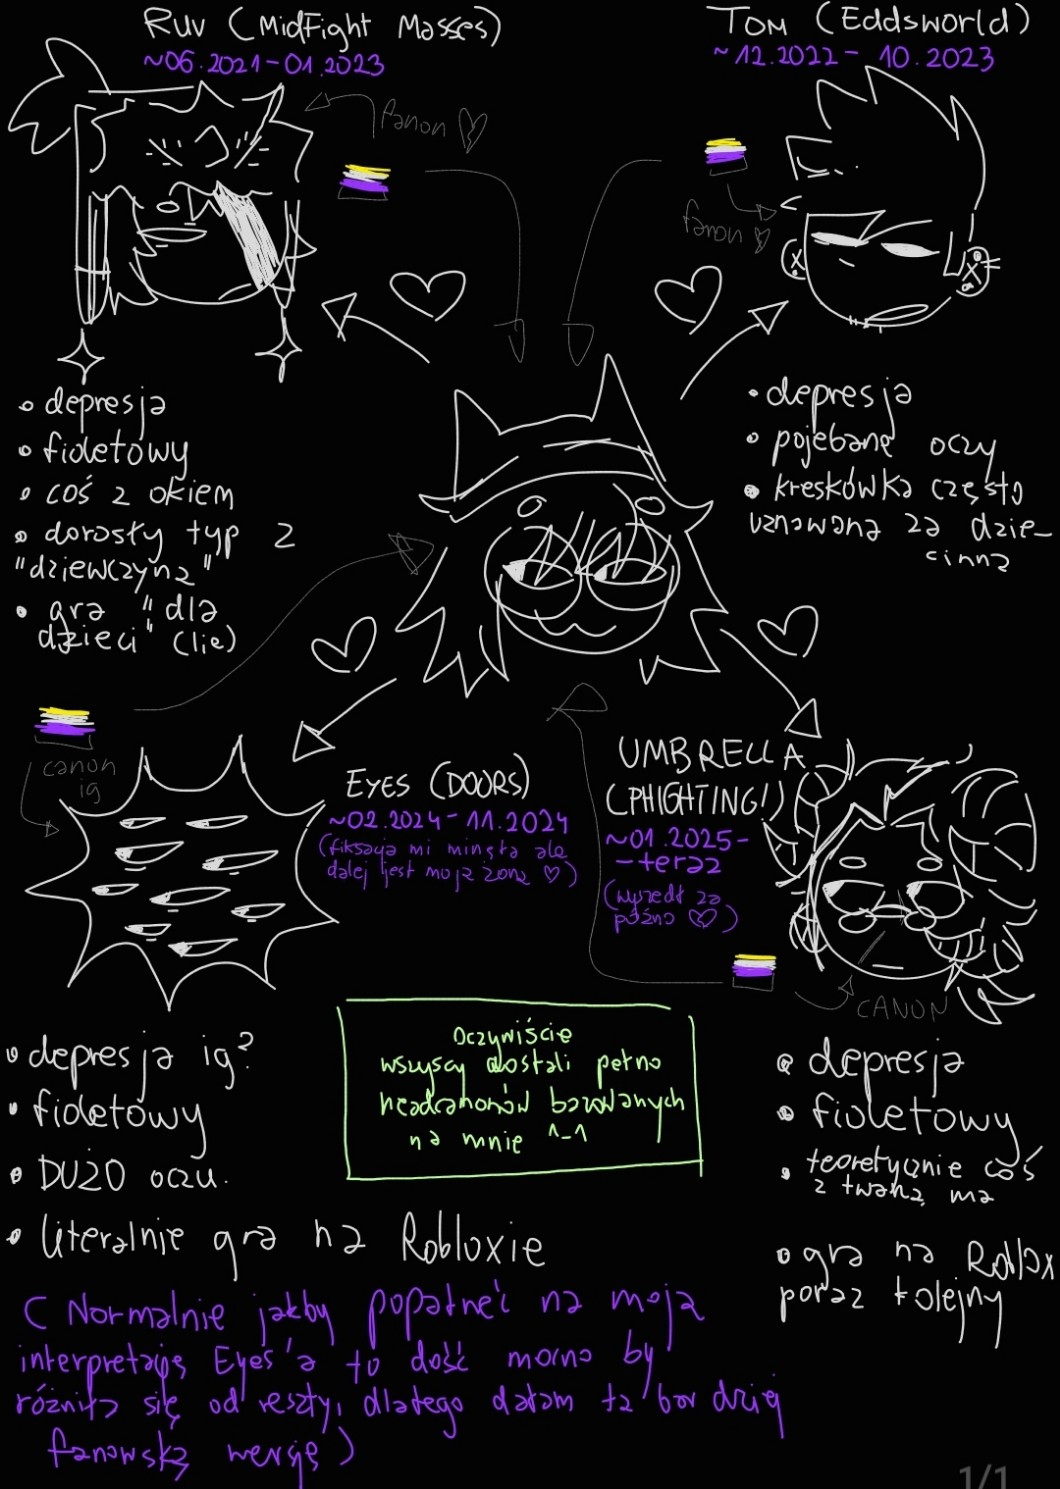 Ruv (MidFight Masses)
~06.2021-01.2023
Tom (Eddsworld)
~12.2022- 10.2023
fanon
fanon
• depresja
• fioletowy
• coś z okiem
• dorosły typ z
"dziewczyną"
• gra "dla
dzieci" (lie)
• depresja
• pojebane oczy
• kreskówka często
uznawana za dzie-
cinną
canon
ig
Eyes (DOORS)
~02.2024-11.2024
(fiksacja mi minęła ale
dalej jest moją żoną ♡)
UMBRELLA
(PHIGHTING!)
~01.2025-
-teraz
(wyszedł za
późno)
CANON
Oczywiście
wszyscy dostali pełno
headcanonów bazowanych
na mnie ^-^
• depresja ig?
• fioletowy
• DUŻO oczu.
• literalnie gra na Robloxie
• depresja
• fioletowy
• teoretycznie coś
z twarzą ma
• gra na Roblox
poraz kolejny
( Normalnie jakby popatrzeć na moją
interpretację Eyes'a to dość mocno by
różniła się od reszty, dlatego dałam tą bardziej
fanowską wersję)
1/1